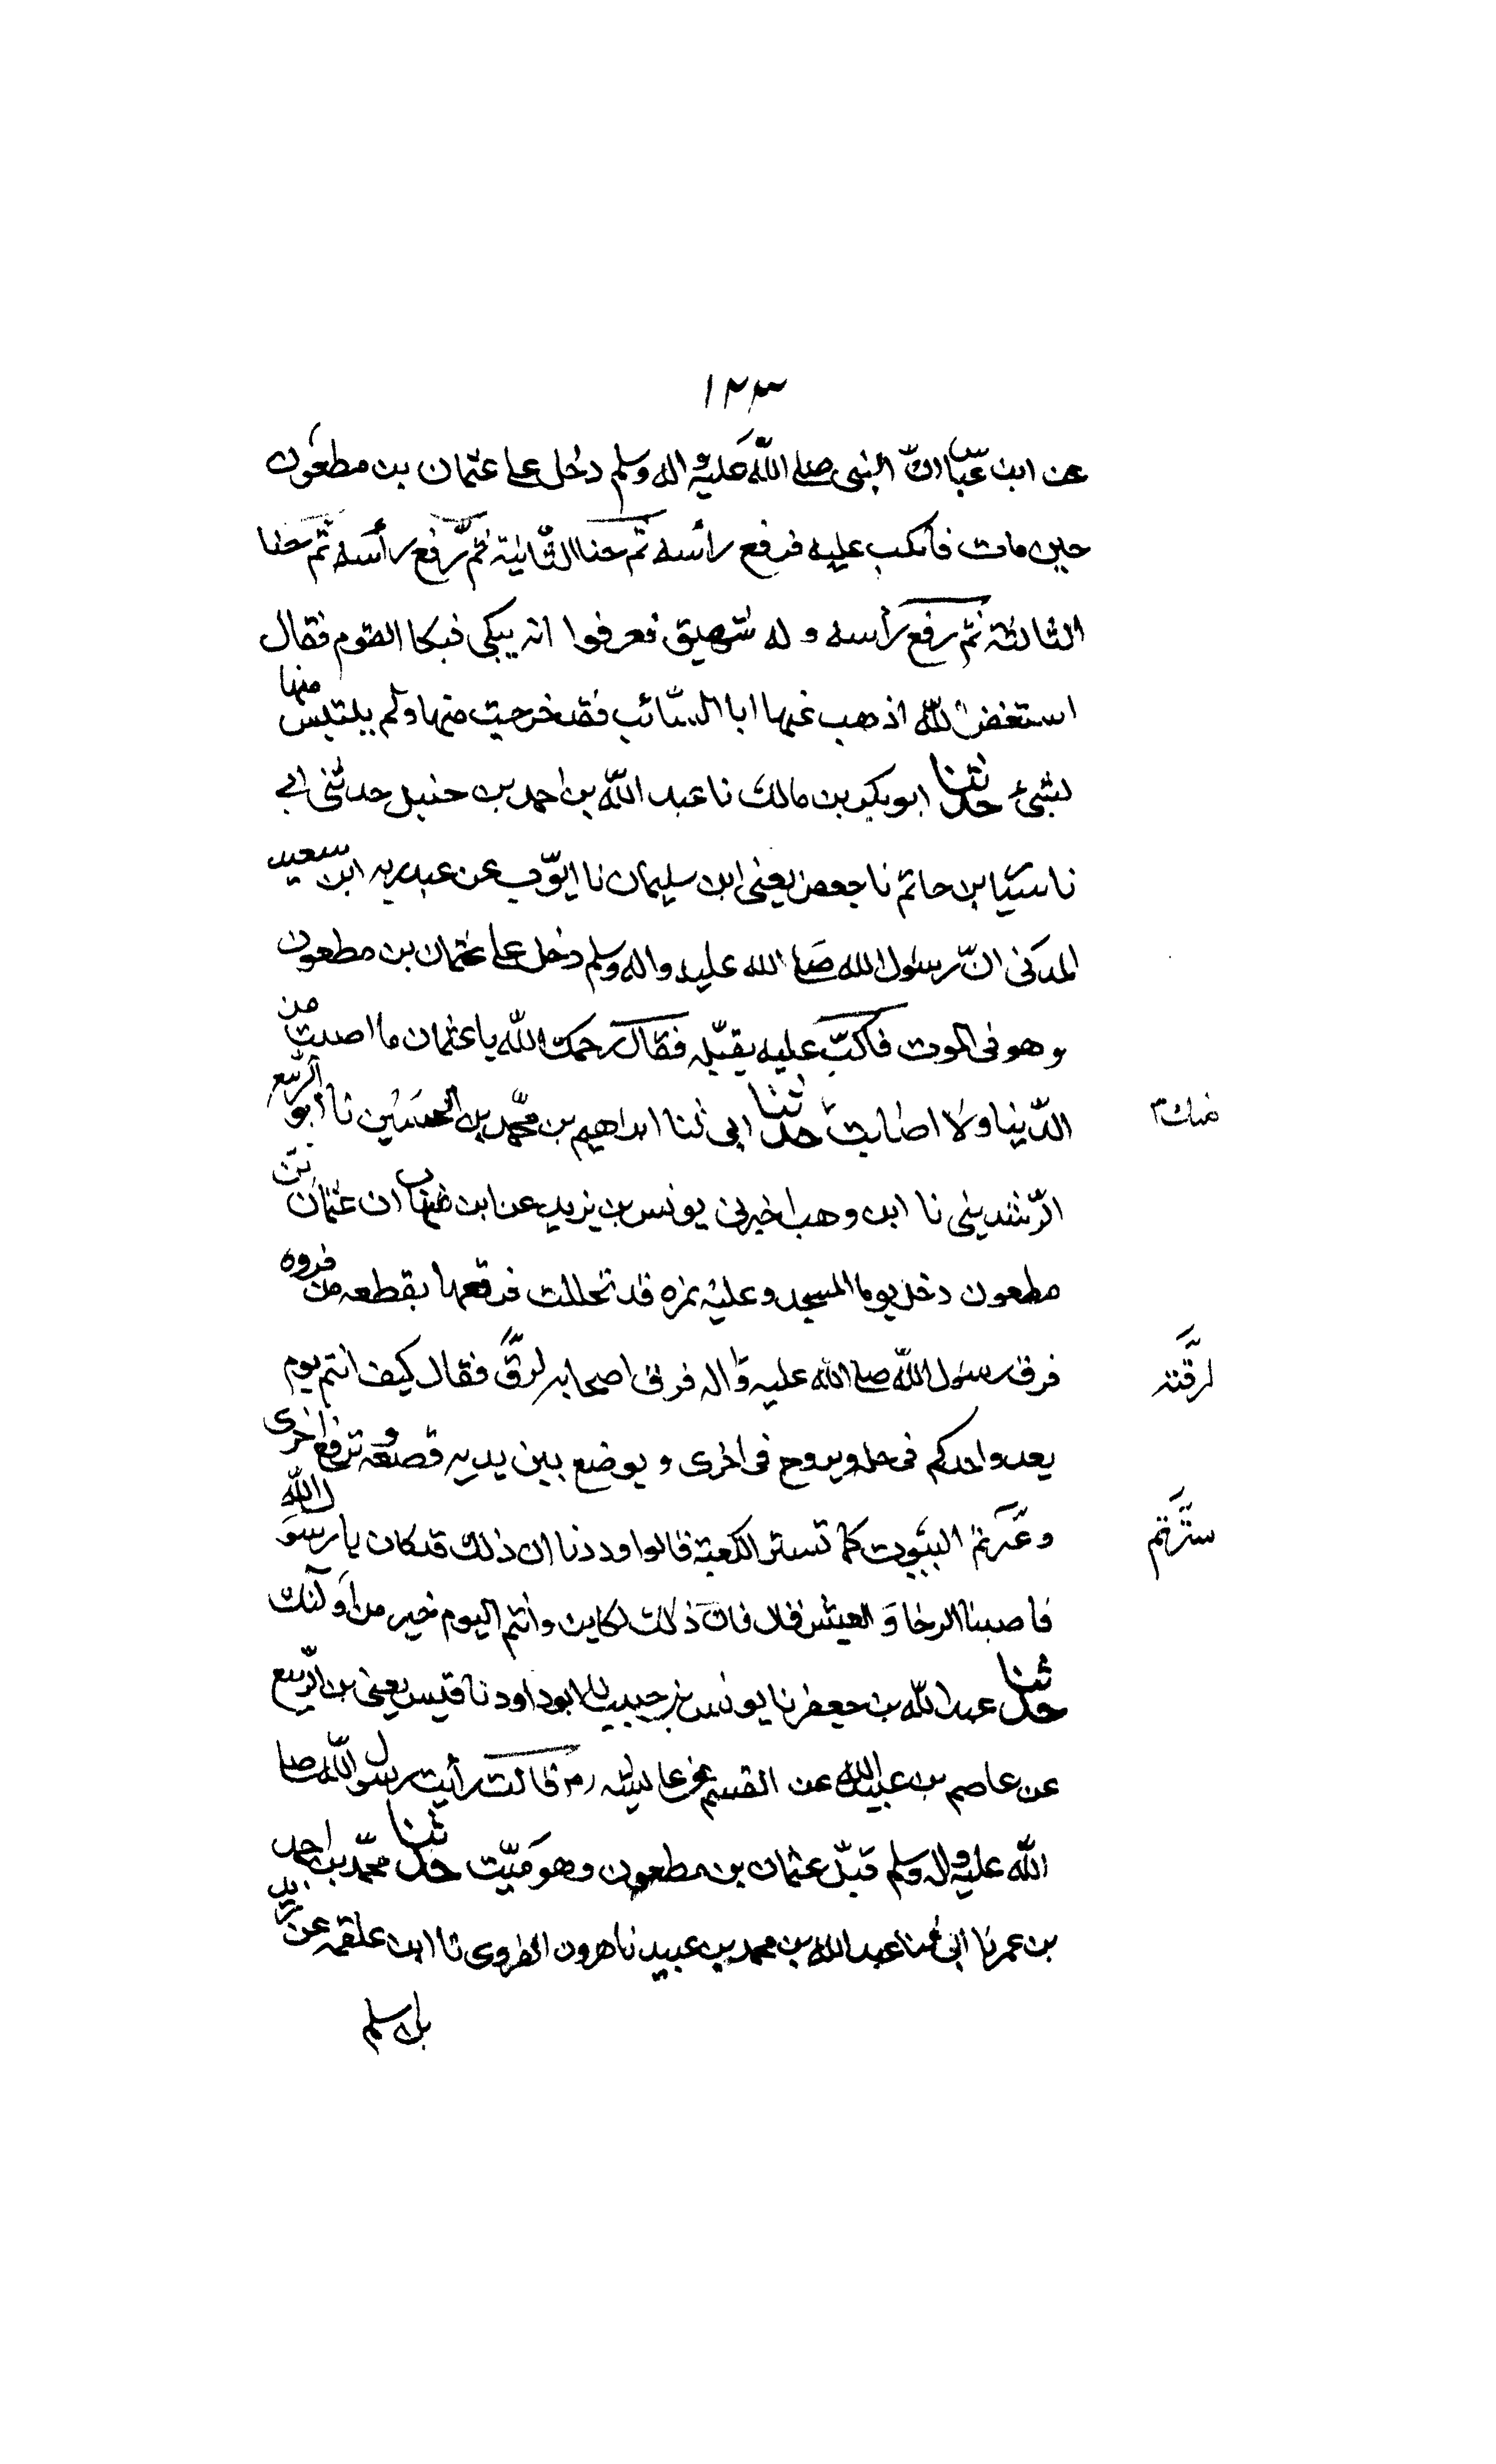 ١٢٣
عن ابن عبّاس انّ النبى صلے اللّٰه عليه و اله وسلم دخل علے عثمان بن مطعون
حين مات فأنكب عليه فرفع رأسه ثم حنا الثانية ثم رفع رأسه ثم حنا
الثالثة ثم رفع رأسه و له شهيق فعرفوا انه يبكى فبكا القوم فقال
استغفر اللّٰه اذهب عنها ابا السّائب فقد خرجت منها ولم يلتبس منها
بشىء حدثنا ابوبكر بن مالك نا عبد اللّٰه بن احمد بن حنبل حدثنى ابى
نا سيّار بن حاتم نا جعفر يعنى ابن سليمان نا ايّوب عن عبد ربه ابن سعيد
المدنى انّ رسول اللّه صَلے اللّه عليه واله وسلم دخل علے عثمان بن مطعون
وهو فى الموت فأكبّ عليه يقبّله فقال رحمك اللّٰه يا عثمان ما اصبت من
الدّنيا ولا اصابت حدثنا ابى ثنا ابراهيم بن محمّد بن الحسين نا ابو الرّبيع
منك
الرّشدينى نا ابن وهب اخبرنى يونس بن يزيد عن ابن شهاب ان عثمان بن
مطعون دخل يوما المسجد وعليه نمره قد تخللت فرقعها بقطعه من فروه
فرق رسول اللّٰه صلے اللّٰه عليه وَاله فرق اصحابه لرقّ فقال كيف انتم يوم
لرقّته
يعدو احدكم فى حله ويروح فى اخرى و يوضع بين يديه قصعه و ترفع اخرى
و البيُوت كما تستر الكعبة قالوا وددنا ان ذلك قد كان يا رسول اللّٰه
سترتم
فاصبنا الرخا وَ العيش قال فانّ ذلك لكاين وانتم اليوم خير من اولٰئك
حدثنا عبد اللّٰه بن جعفر نا يونس بن حبيب نا ابوداود نا قيس يعنى بن الرّبيع
عن عاصم بن عبيد اللّٰه عن القسم عن عايشه رض قالت رأيت رسول اللّٰه صلے
اللّٰه عليه و اله وسلم قبّل عثمان بن مطعون وهو ميّت حدثنا محمّد بن احمد
بن عمر نا ابى ثنا عبد اللّٰه بن محمد بن عبيد نا هرون الفروى نا ابن علقمه عن زيد
بن اسلم